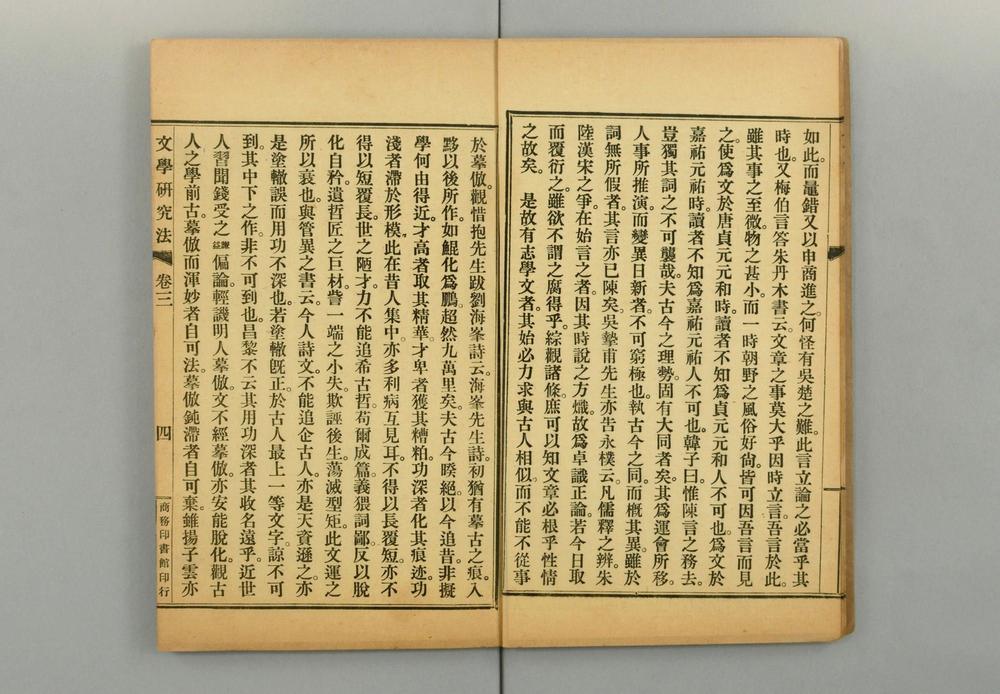 如此。而鼂錯又以申商進之。何怪有吳楚之難。此言立論之必當乎其
時也。又梅伯言答朱丹木書云。文章之事。莫大乎因時立言。吾言於此。
雖其事之至微。物之甚小。而一時朝野之風俗好尚。皆可因吾言而見
之。使爲文於唐貞元元和時。讀者不知爲貞元元和人。不可也。爲文於
嘉祐元祐時。讀者不知爲嘉祐元祐人。不可也。韓子曰。惟陳言之務去。
豈獨其詞之不可襲哉。夫古今之理勢。固有大同者矣。其爲運會所移。
人事所推演。而變異日新者。不可窮極也。執古今之同。而概其異。雖於
詞無所假者。其言亦已陳矣。吳摯甫先生亦告永樸云。凡儒釋之辨。朱
陸漢宋之爭。在始言之者。因其時說之方熾。故爲卓識正論。若今日取
而覆衍之。雖欲不謂之腐得乎。綜觀諸條。庶可以知文章必根乎性情
之故矣。 是故有志學文者。其始必力求與古人相似。而不能不從事
於摹倣。觀惜抱先生跋劉海峯詩云。海峯先生詩。初猶有摹古之痕。入
黟以後所作。如鯤化爲鵬。超然九萬里矣。夫古今暌絕。以今追昔。非擬
學何由得近。才高者取其精華。才卑者獲其糟粕。功深者化其痕迹。功
淺者滯於形模。此在昔人集中。亦多利病互見耳。不得以長覆短。亦不
得以短覆長。世之陋才。力不能追希古哲。苟爾成篇。義猥詞鄙。反以脫
化自矜。遺哲匠之巨材。訾一端之小失。欺誣後生。蕩滅型矩。此文運之
所以衰也。與管異之書云。今人詩文不能追企古人。亦是天資遜之。亦
是塗轍誤而用功不深也。若塗轍旣正。於古人最上一等文字。諒不可
到。其中下之作。非不可到也。昌黎不云。其用功深者其收名遠乎。近世
人習聞錢受之謙益偏論。輕譏明人摹倣。文不經摹倣。亦安能脫化。觀古
人之學前古。摹倣而渾妙者自可法。摹倣鈍滯者自可棄。雖揚子雲亦
文學研究法 卷三 四 商務印書館印行